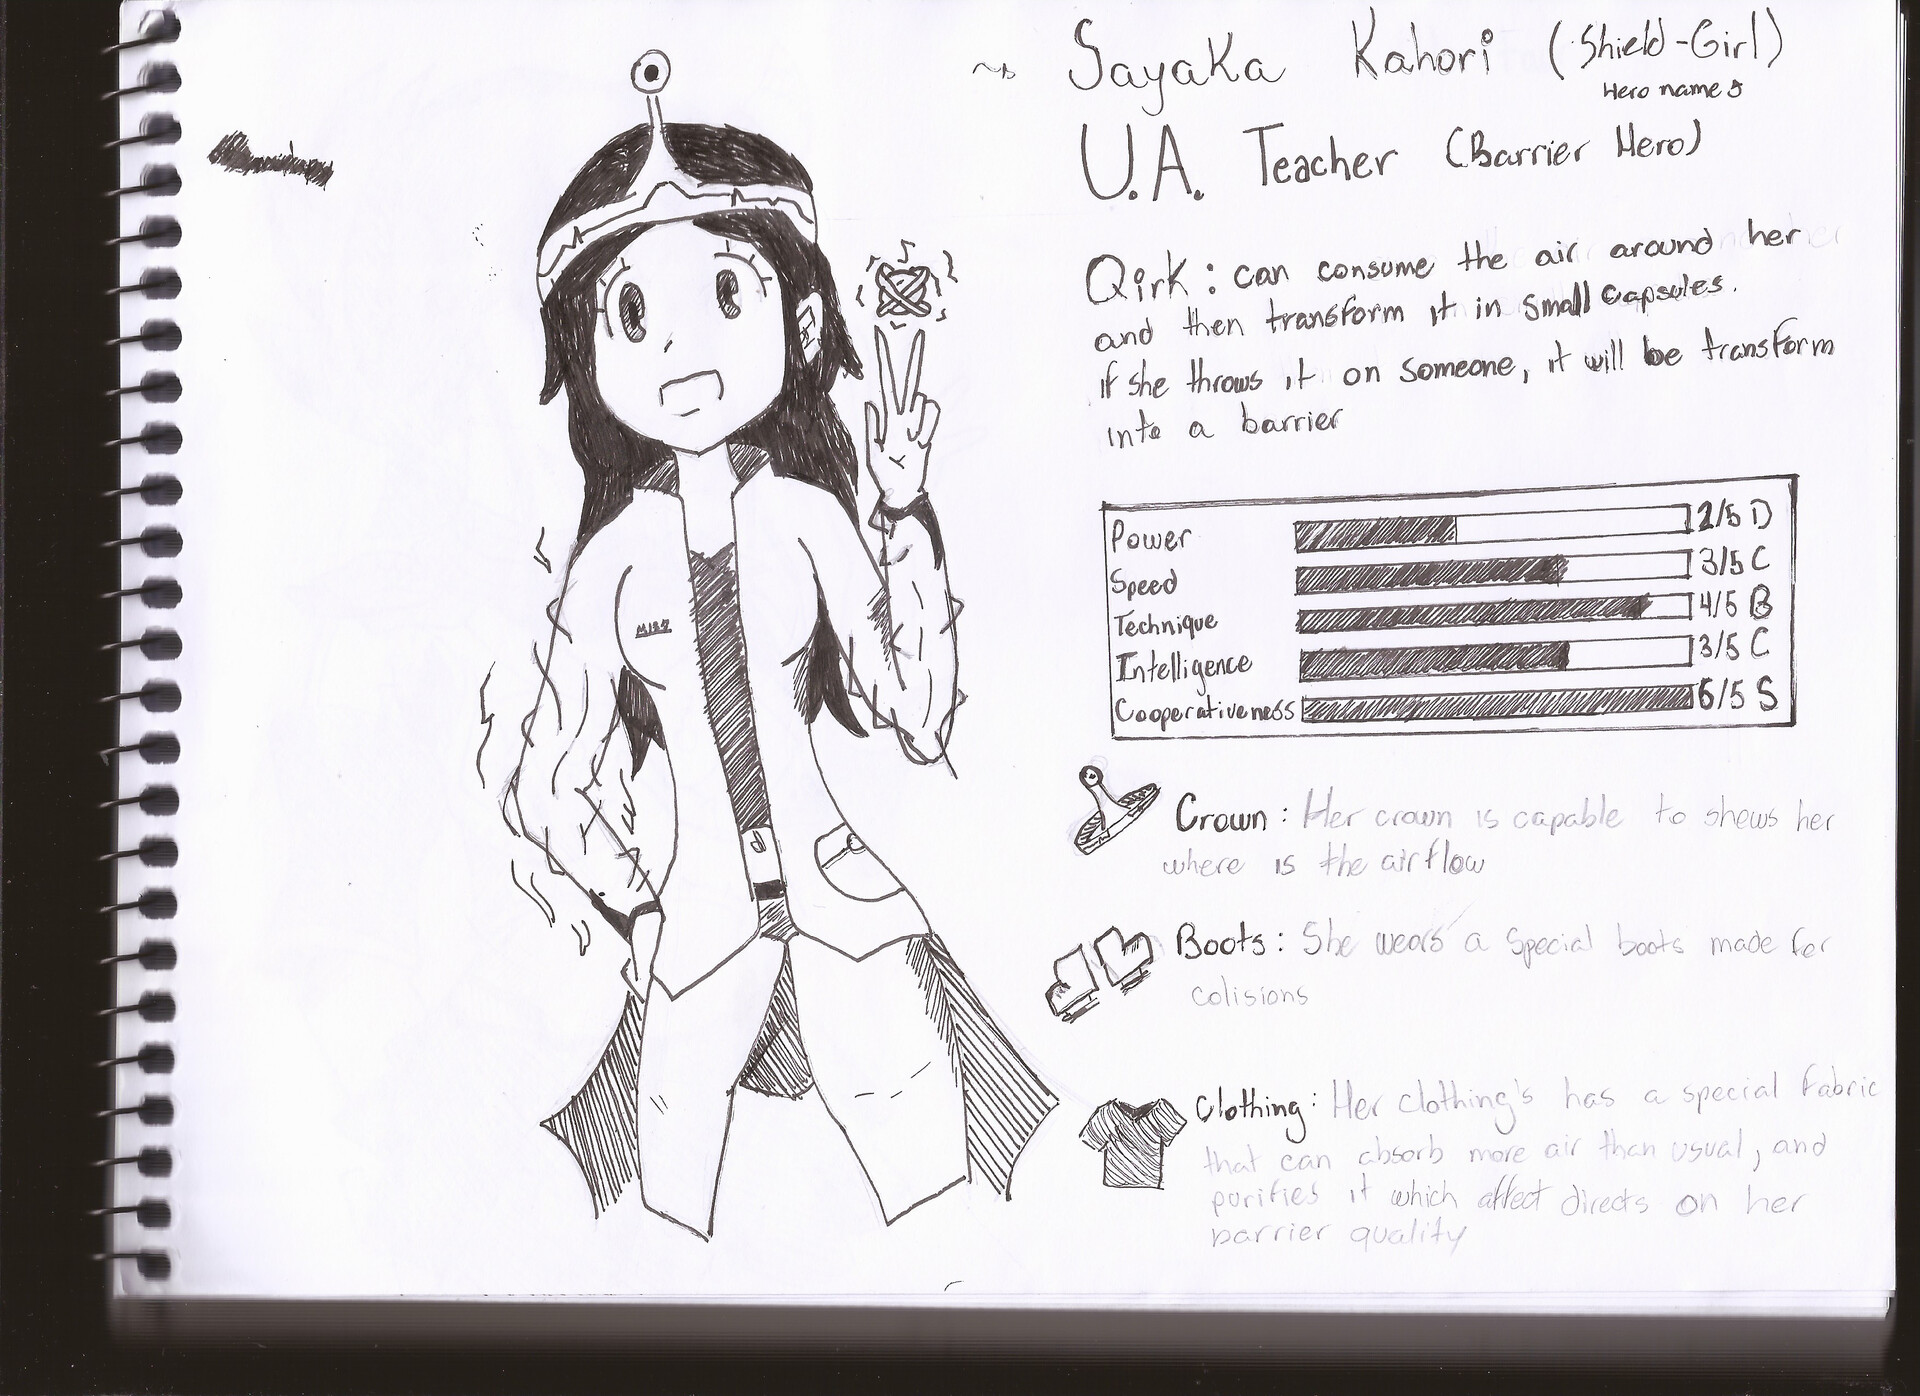 Sayaka Kahori (Shield-Girl)
Hero name
U.A. Teacher (Barrier Hero)
Qirk: can consume the air around her
and then transform it in small capsules.
if she throws it on someone, it will be transform
into a barrier
Power 2/5 D
Speed 3/5 C
Technique 4/5 B
Intelligence 3/5 C
Cooperativeness 6/5 S
Crown: Her crown is capable to shows her
where is the airflow
Boots: She wears a special boots made for
colisions
Clothing: Her clothing's has a special fabric
that can absorb more air than usual, and
purifies it which affect directs on her
barrier quality